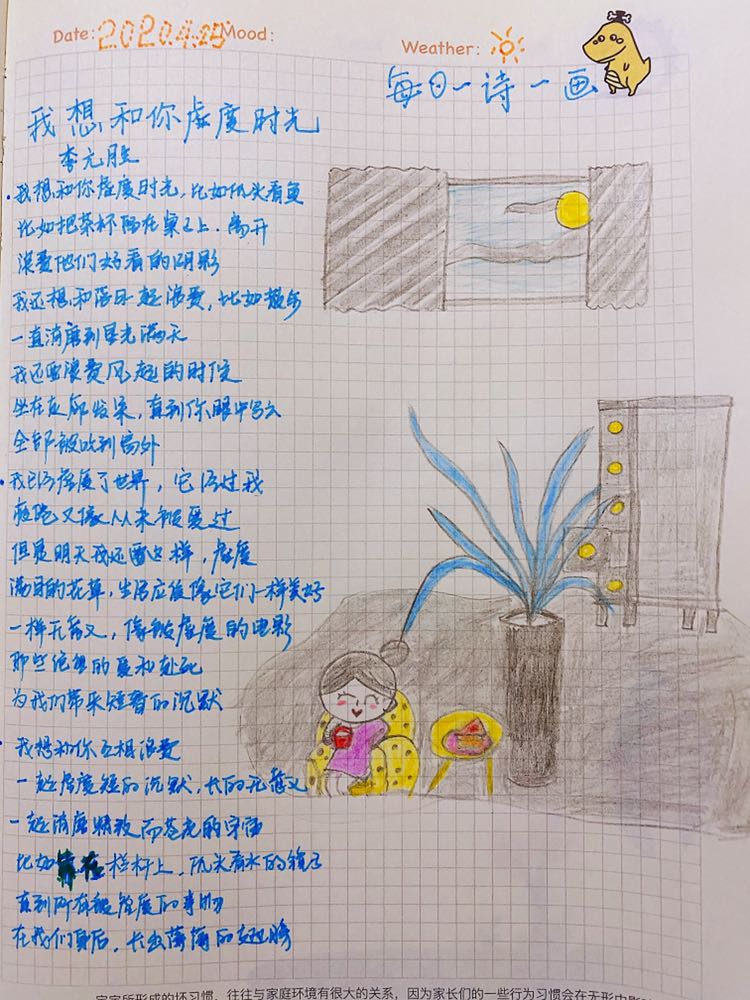 Date: 2020.4.25 Mood:
Weather:
每日一诗一画
我想和你虚度时光
李元胜
我想和你虚度时光，比如低头看鱼
比如把茶杯留在桌子上，离开
浪费他们好看的阴影
我还想和落日一起浪费，比如散步
一直消磨到星光满天
我还要浪费风起的时候
坐在走廊发呆，直到你眼中乌云
全部被吹到窗外
我已经虚度了世界，它经过我
疲倦又像从未被爱过
但是明天我还要这样，虚度
满目的花草，生活应该像它们一样美好
一样无意义，像被虚度的电影
那些绝望的爱和赴死
为我们带来短暂的沉默
我想和你互相浪费
一起虚度短的沉默，长的无意义
一起消磨精致而苍老的宇宙
比如靠在栏杆上，低头看水的镜子
直到所有被虚度的事物
在我们身后，长出薄薄的翅膀
宝宝所形成的坏习惯，往往与家庭环境有很大的关系，因为家长们的一些行为习惯会在无形中